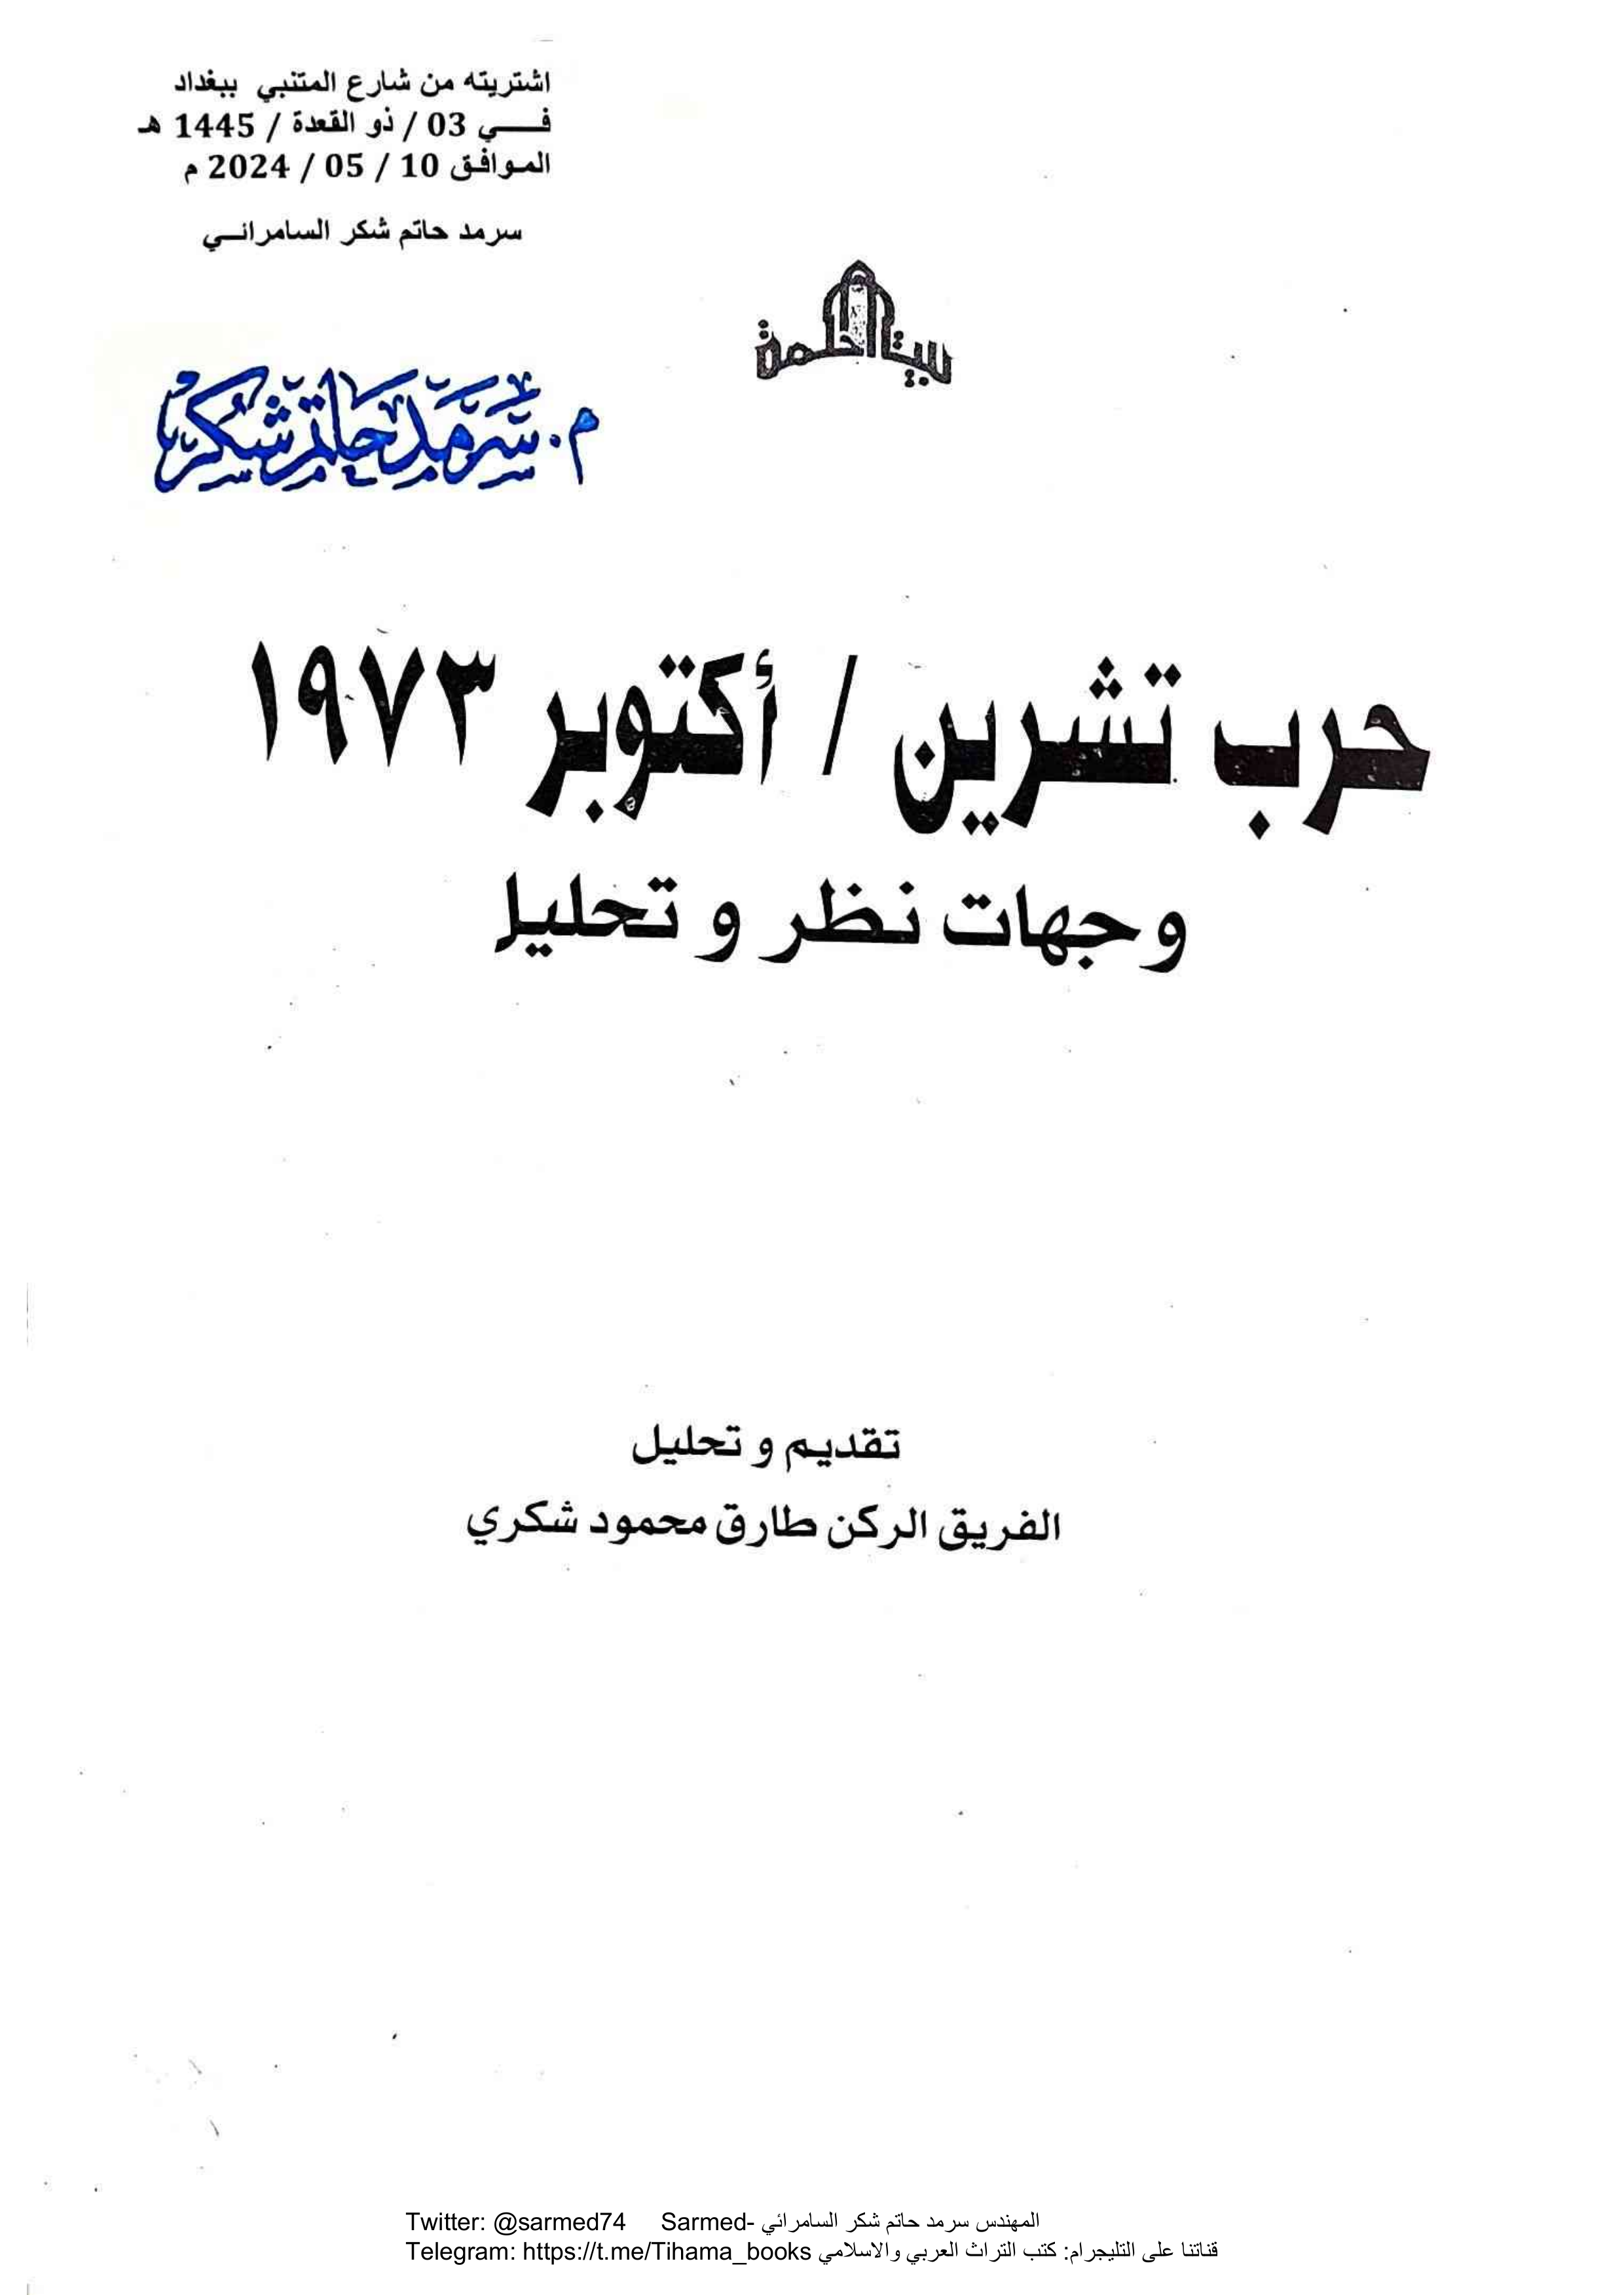 اشتريته من شارع المتنبي ببغداد
فـــي 03 / ذو القعدة / 1445 هـ
الموافق 10 / 05 / 2024 م
سرمد حاتم شكر السامرائــي
بيت الحكمة
م. سرمد حاتم شكر
حرب تشرين / أكتوبر ١٩٧٣
وجهات نظر وتحليل
تقديم وتحليل
الفريق الركن طارق محمود شكري
Twitter: @sarmed74 Sarmed- المهندس سرمد حاتم شكر السامرائي
Telegram: https://t.me/Tihama_books قناتنا على التليجرام: كتب التراث العربي والاسلامي